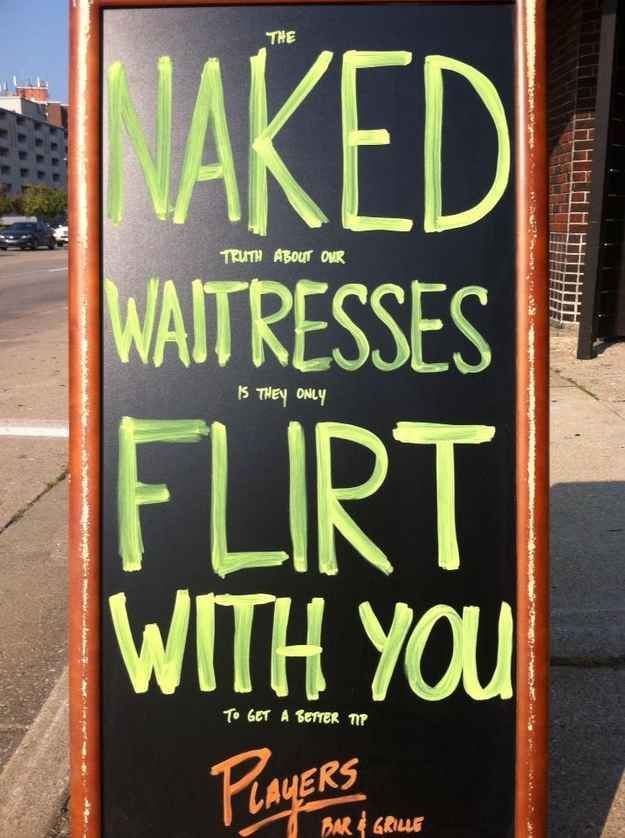 THE
NAKED
TRUTH ABOUT OUR
WAITRESSES
IS THEY ONLY
FLIRT
WITH YOU
TO GET A BETTER TIP
PLAYERS
BAR & GRILLE